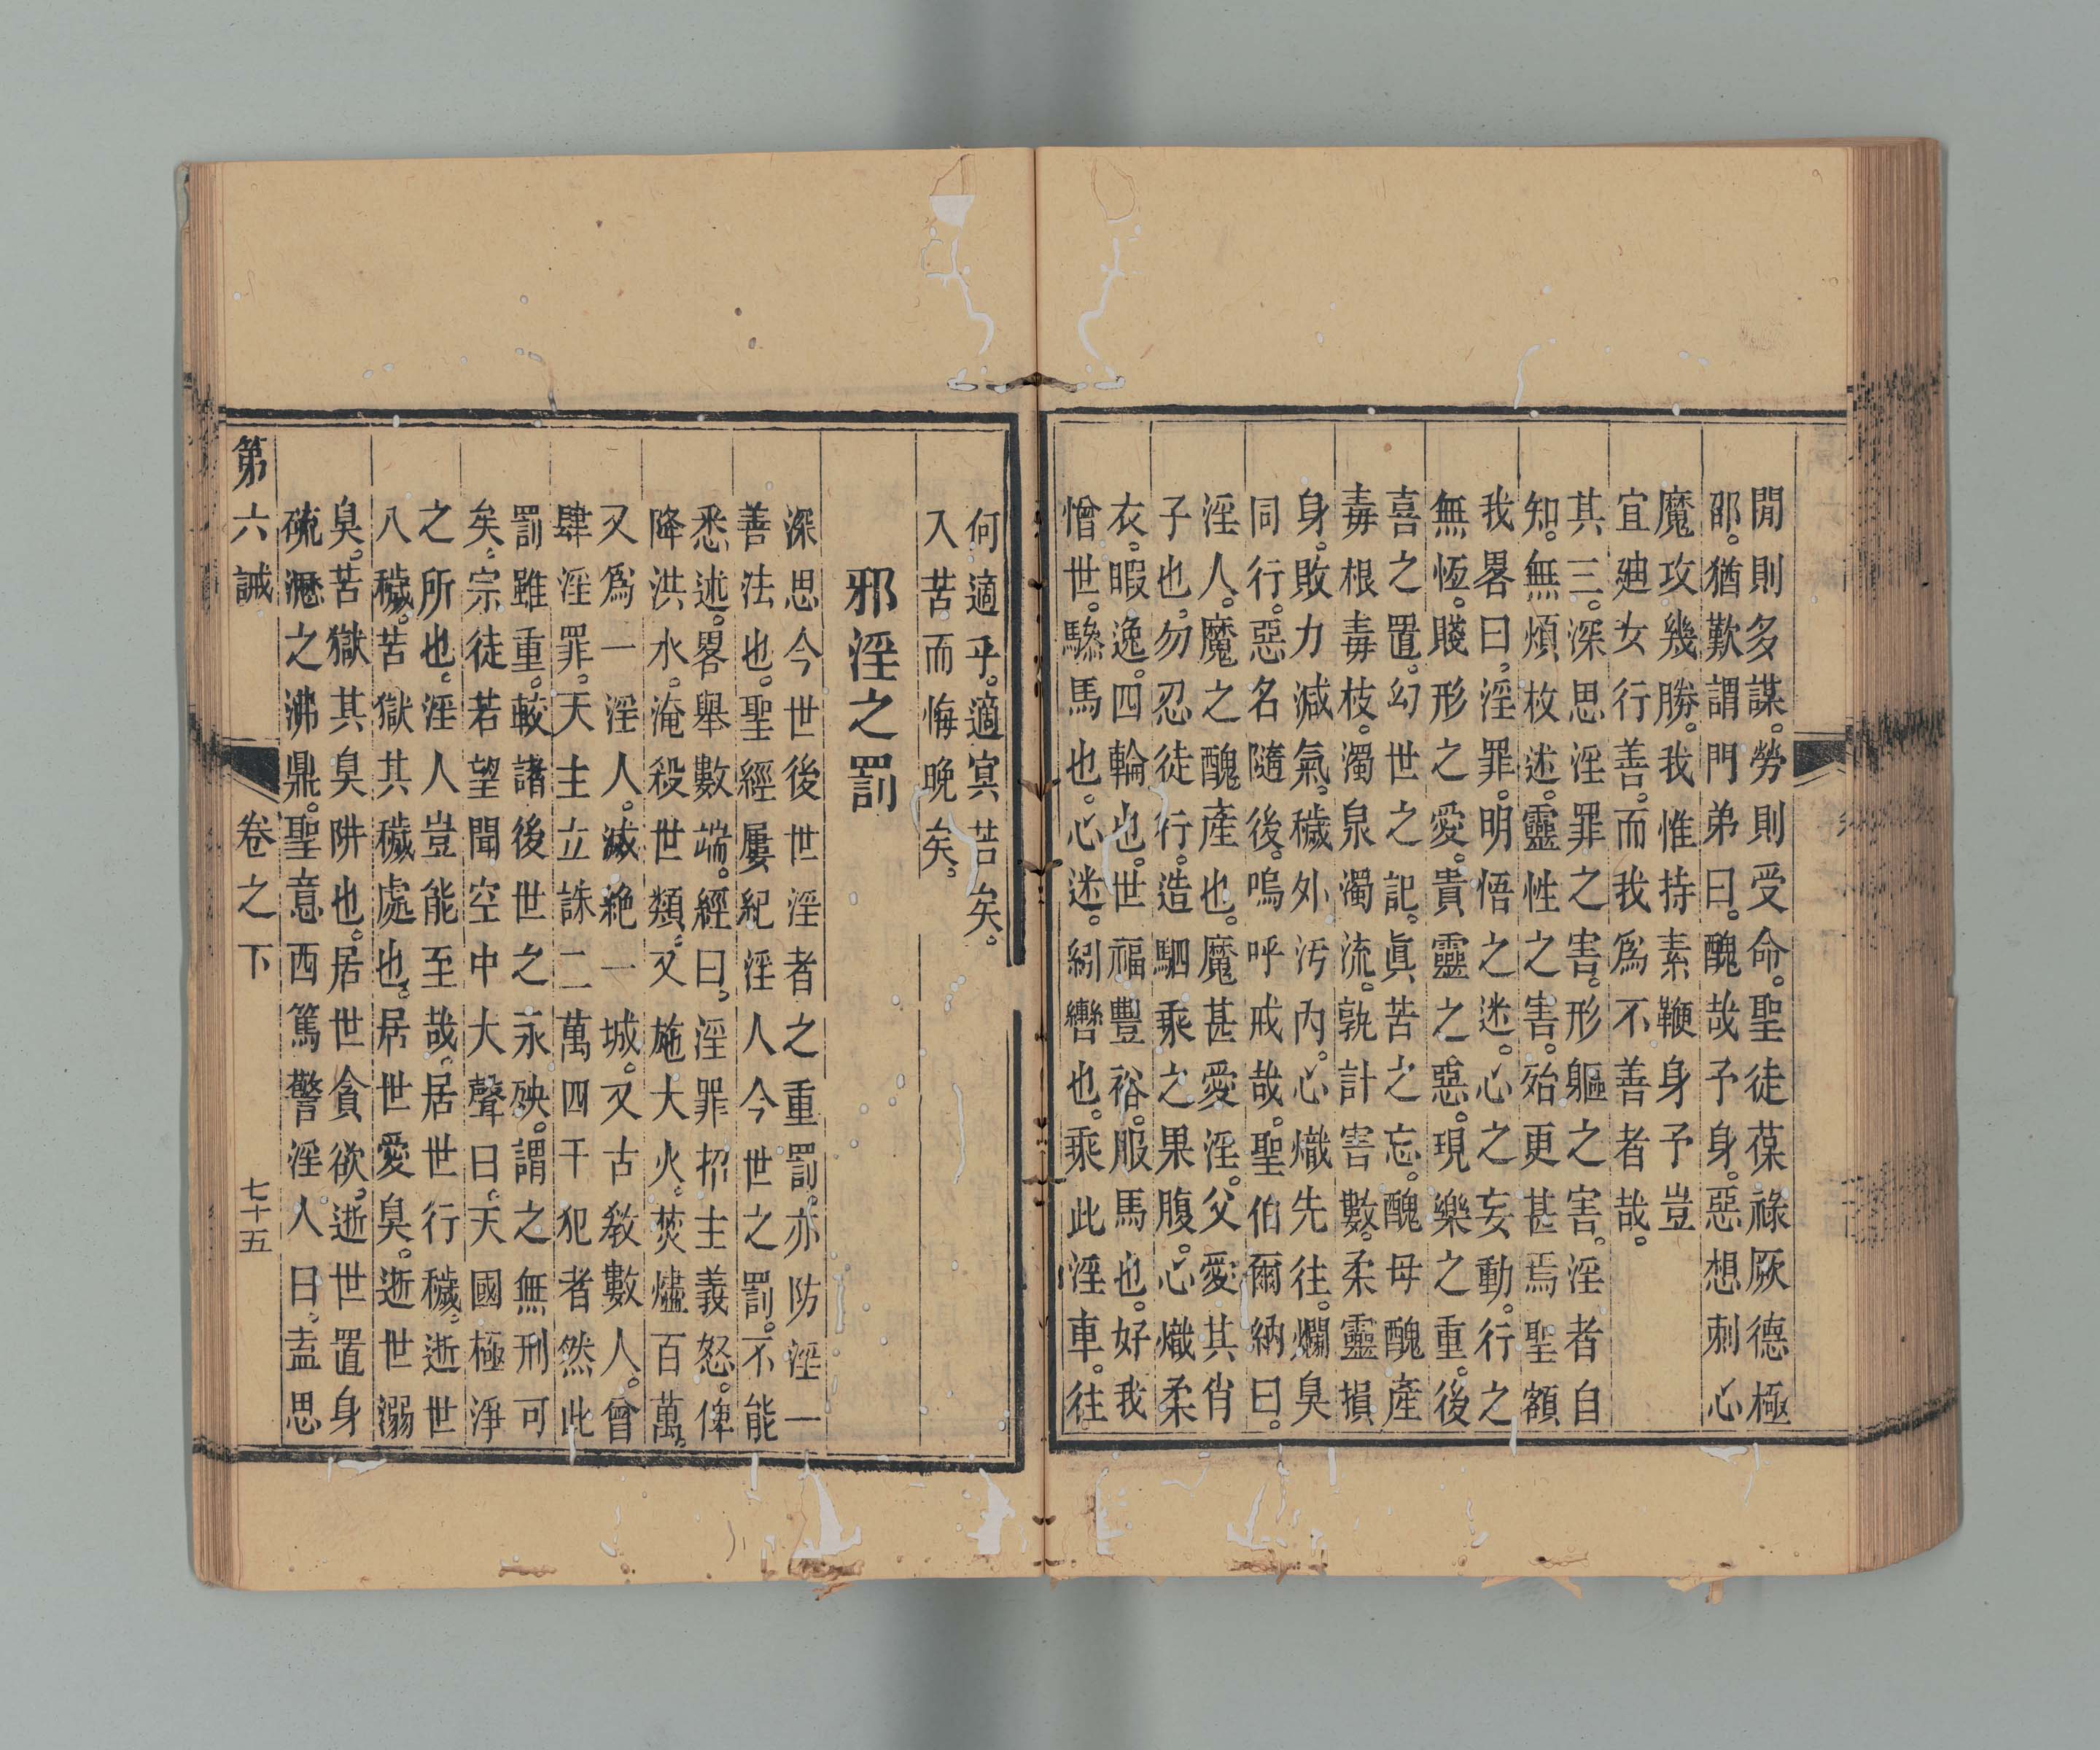 閒則多謀。勞則受命。聖徒葆祿厥德極
卲。猶歎謂門弟曰。醜哉予身。惡想刺心
魔攻幾勝。我惟持素鞭身予豈
宜廸女行善。而我爲不善者哉。
其三。深思淫罪之害。形軀之害。淫者自
知。無煩枚述。靈性之害。殆更甚焉聖額
我畧曰。淫罪。明悟之迷。心之妄動。行之
無恆。賤形之愛。貴靈之惡。現樂之重。後
喜之置。幻世之記。眞苦之忘。醜母醜產
毒根毒枝。濁泉濁流。孰計害數。柔靈損
身。敗力減氣。穢外汚內。心熾先往。爛臭
同行。惡名隨後。嗚呼戒哉。聖伯爾納曰。
淫人。魔之醜產也。魔甚愛淫。父愛其肖
子也。勿忍徒行。造駟乘之果腹。心熾柔
衣。暇逸。四輪也。世福豐裕。服馬也。好我
憎世。驂馬也。心迷。紖轡也。乘此淫車。往
何適乎。適冥苦矣。
入苦而悔晚矣。
邪淫之罰
深思今世後世淫者之重罰。亦防淫一
善法也。聖經屢紀淫人今世之罰。不能
悉述。畧舉數端。經曰。淫罪招主義怒。俾
降洪水。淹殺世類。又施大火。焚燼百萬。
又爲一淫人。滅絶一城。又古教數人。曾
肆淫罪。天主立誅二萬四千犯者然此
罰雖重。較諸後世之永殃。謂之無刑可
矣。宗徒若望聞空中大聲曰。天國極淨
之所也。淫人豈能至哉。居世行穢。逝世
八穢。苦獄其穢處也。居世愛臭。逝世溺
臭。苦獄其臭阱也。居世貪欲。逝世置身
硫瀝之沸鼎。聖意西篤警淫人曰。盍思
第六誡
卷之下
七十五